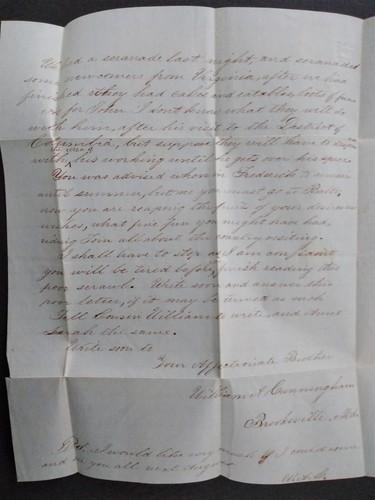 a seranade last night, and seranaded
some newcomers from Virginia, after we had
finished they had cakes and eatables, lots of fun
for John I don't know what they will do
with him, after his visit to the District of
Columbia, but suppose they will have to
with his working until he gets over his spree
You was advised when in Frederick to
until summer, but no you must go to Balt.
now you are reaping the fruits of your desires
wishes, what fine fun you might have had,
riding Tom all about the country visiting.
I shall have to stop as I am
you will be tired before finish reading this
poor scrawl. Write soon and answer this
poor letter, if it may be termed as such
Tell Cousin William to write, and Aunt
Sarah the same.
Write soon to
Your Affectionate Brother
William A. Cunningham
Brookville, Md.
P.S. I would like very much if I could come
and see you all next August